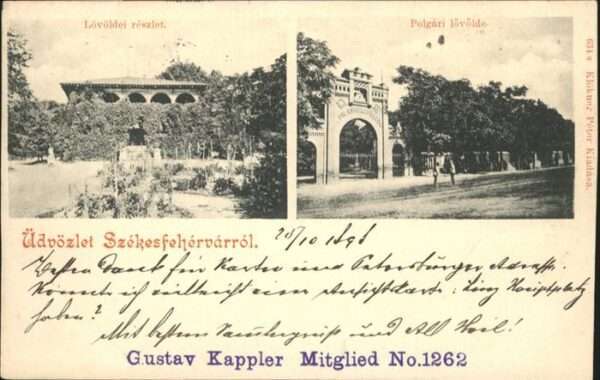 Lövöldei részlet.
Polgári lövölde.
Klökner Péter Kiadása.
Üdvözlet Székesfehérvárról.
28/10 1898
Besten Dank für Karte und Petersburger Adresse.
Könnte ich vielleicht eine Ansichtskarte: Linz Hauptplatz
haben?
Mit bestem Sammlergruß und All Heil!
Gustav Kappler Mitglied No.1262